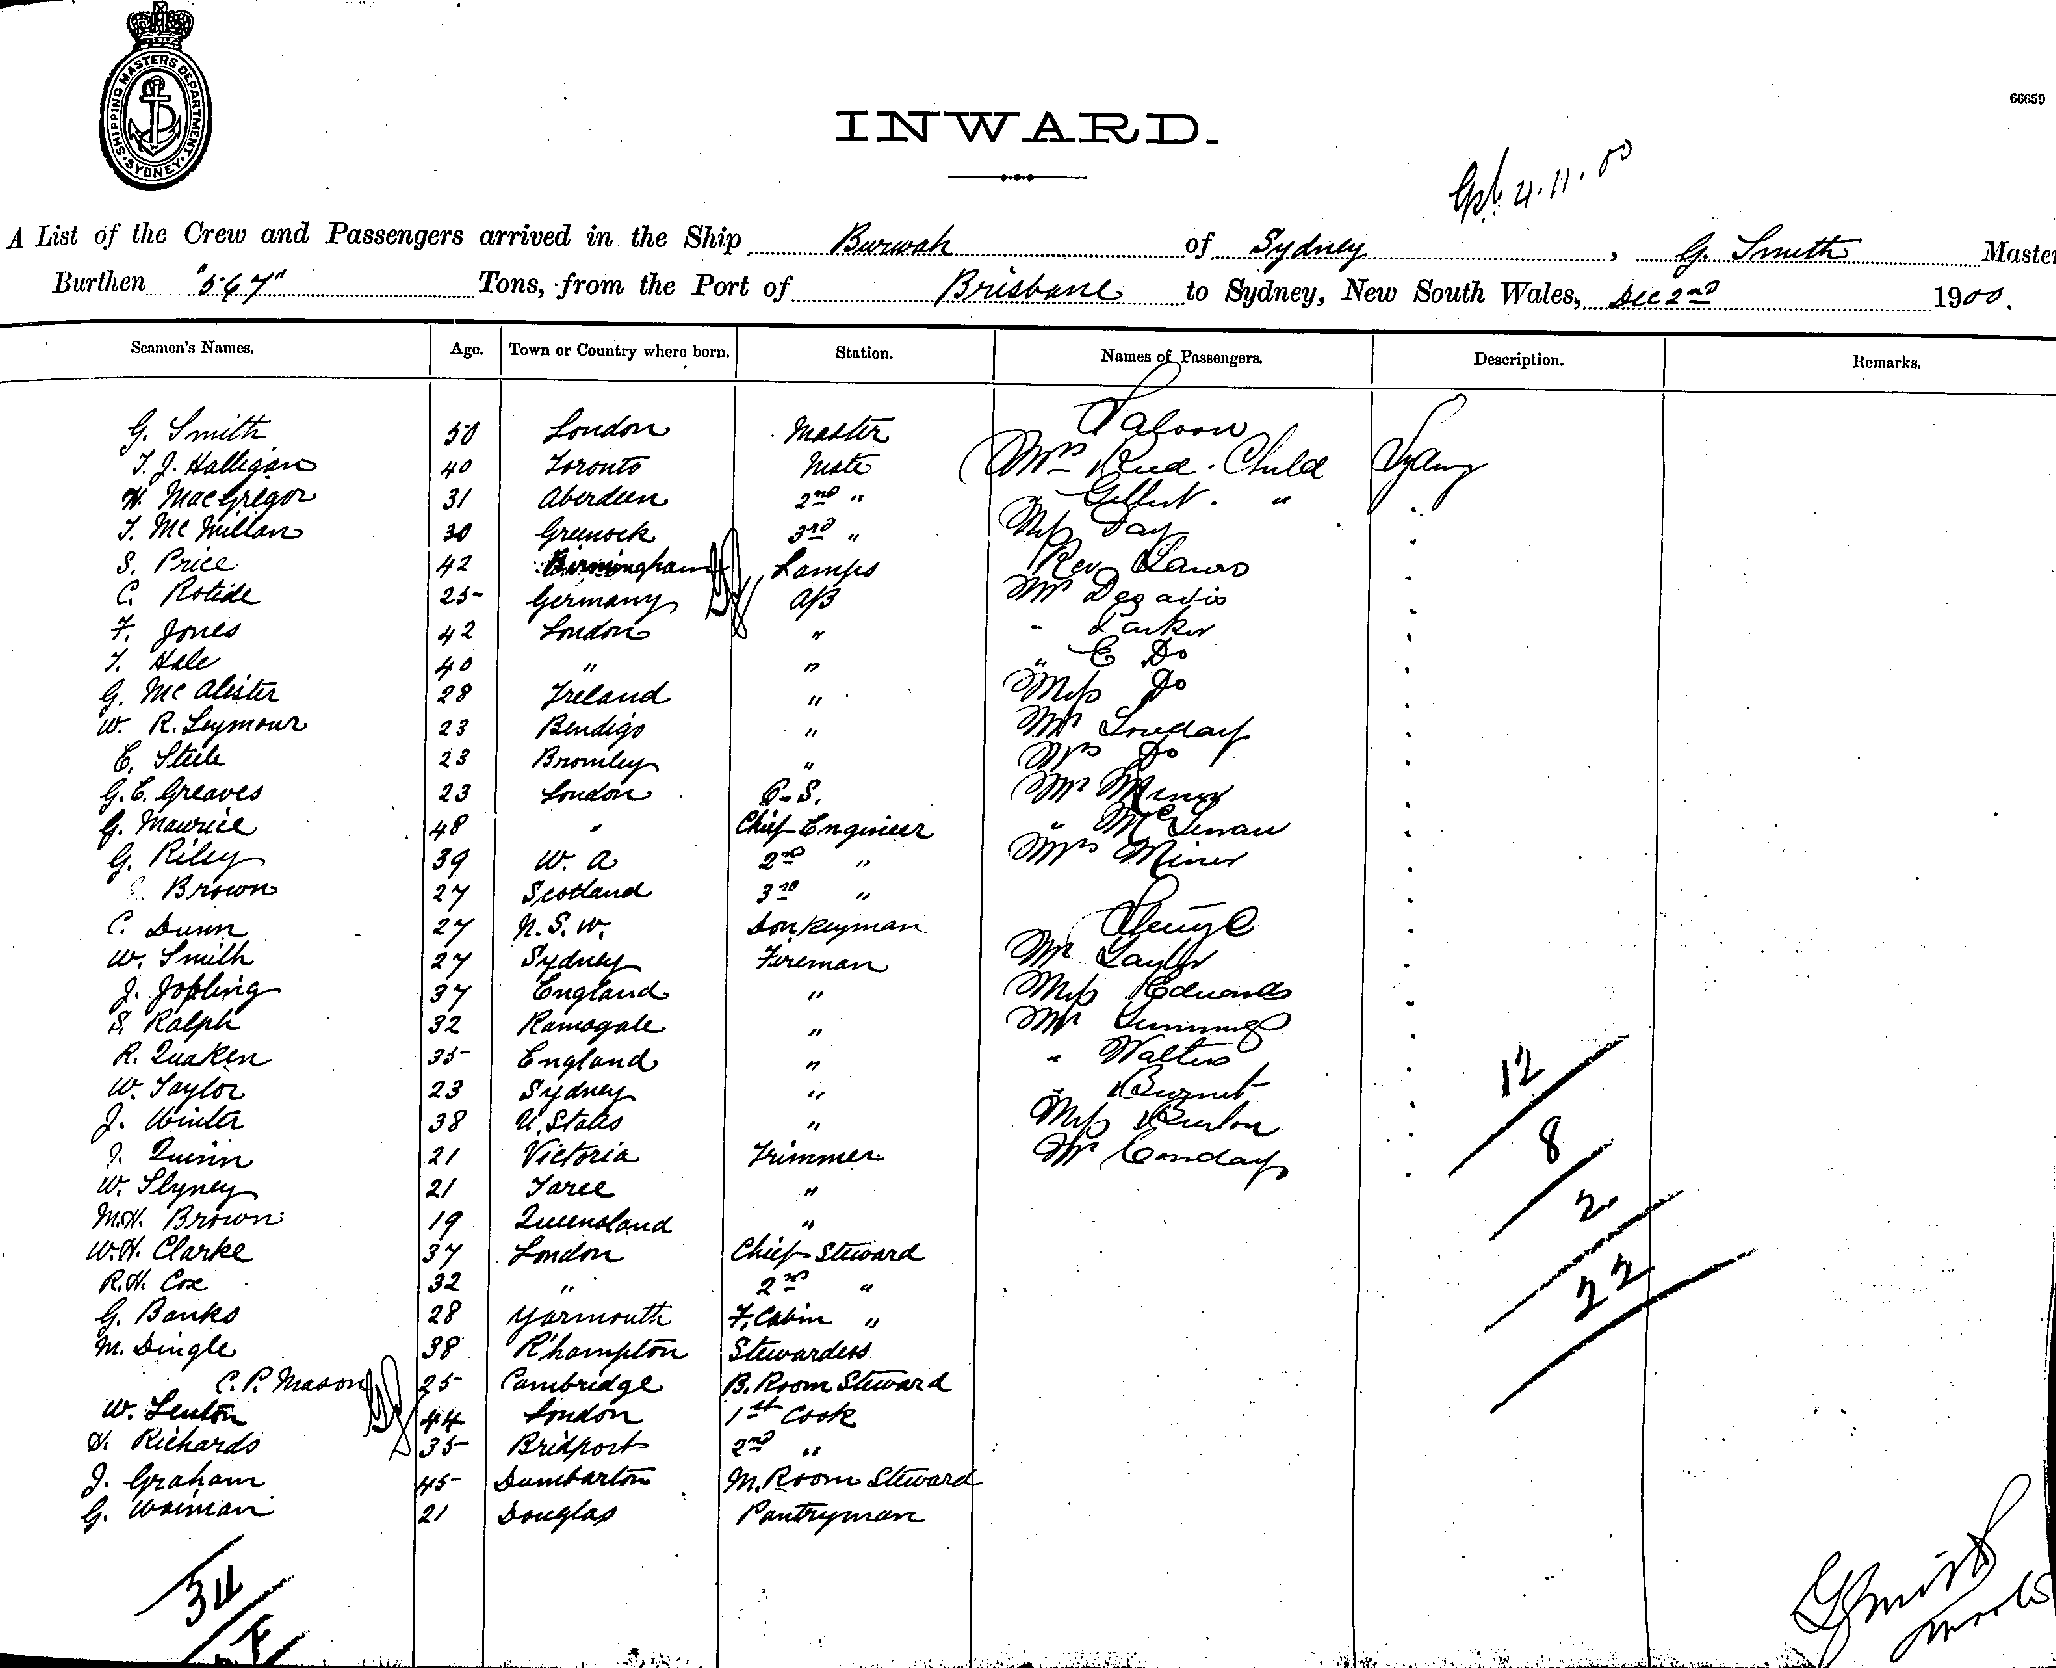 SHIPPING MASTERS DEPARTMENT
SYDNEY
66659
INWARD.
4.11.00
A List of the Crew and Passengers arrived in the Ship Burwah of Sydney, G. Smith Master
Burthen "567" Tons, from the Port of Brisbane to Sydney, New South Wales, Dec 2nd 1900.
Seamen's Names. Age. Town or Country where born. Station. Names of Passengers. Description. Remarks.
Saloon
G. Smith 50 London Master
T. J. Halligan 40 Toronto Mate Mrs Reid. Child Sydney
H. MacGregor 31 Aberdeen 2nd " Gilbert. "
J. McMillan 30 Greenock 3rd " Miss Day
S. Price 42 Birmingham Lamps Rev
C. Rotide 25 Germany A/B Mr
F. Jones 42 London " " Parker
T. Hale 40 " " " E Do
G. McAlister 28 Ireland " Miss Do
W. R. Seymour 23 Bendigo " Mr
E. Steele 23 Bromley " Mrs Do
G. E. Greaves 23 London O.S. Mr
G. Maurice 48 " Chief Engineer "
G. Riley 39 W. A 2nd " Mrs Miner
Brown 27 Scotland 3rd "
C. Dunn 27 N. S. W. Donkeyman
W. Smith 27 Sydney Fireman Mr Taylor
J. Jopling 37 England " Miss Edwards
S. Ralph 32 Ramsgate " Mr
R. Quaken 35 England " " Walters
W. Taylor 23 Sydney " " Burnet
J. Winter 38 U. States " Miss Burton
J. Quinn 21 Victoria Trimmer Mr
W. Slyney 21 Taree "
M.H. Brown 19 Queensland "
W.H. Clarke 37 London Chief Steward
R.H. Cox 32 " 2nd "
G. Banks 28 Yarmouth F. Cabin "
M. Dingle 38 R'hampton Stewardess
C. P. Mason 25 Cambridge B. Room Steward
W. Lenton 44 London 1st Cook
H. Richards 35 Bridport 2nd "
J. Graham 45 Dumbarton M. Room Steward
G. Waiman 21 Douglas Pantryman
12
8
2
22
34
G Smith